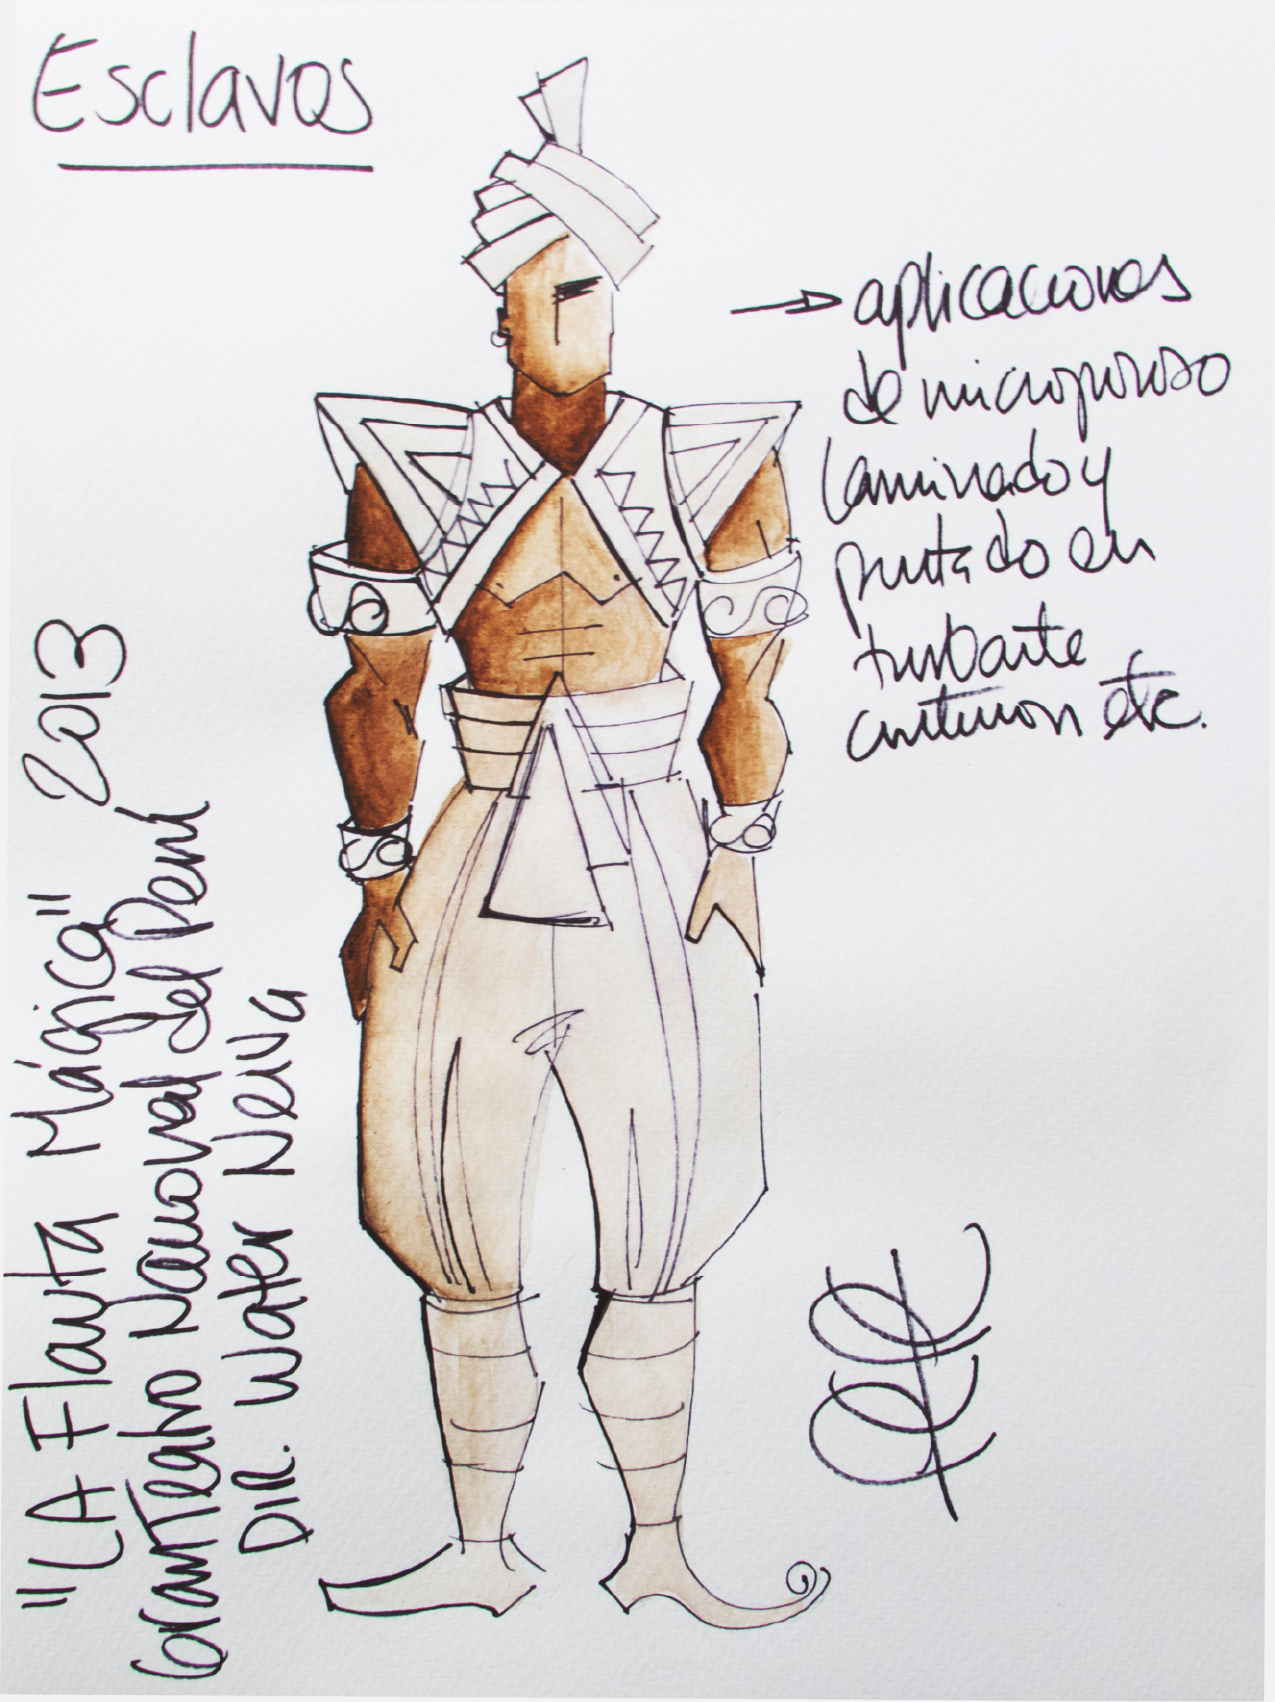 Esclavos
aplicaciones
de microporoso
laminado y
pintado en
turbante
cinturon etc.
"LA Flauta Mágica" 2013
Gran Teatro Nacional del Perú
DIR. Water Neiva